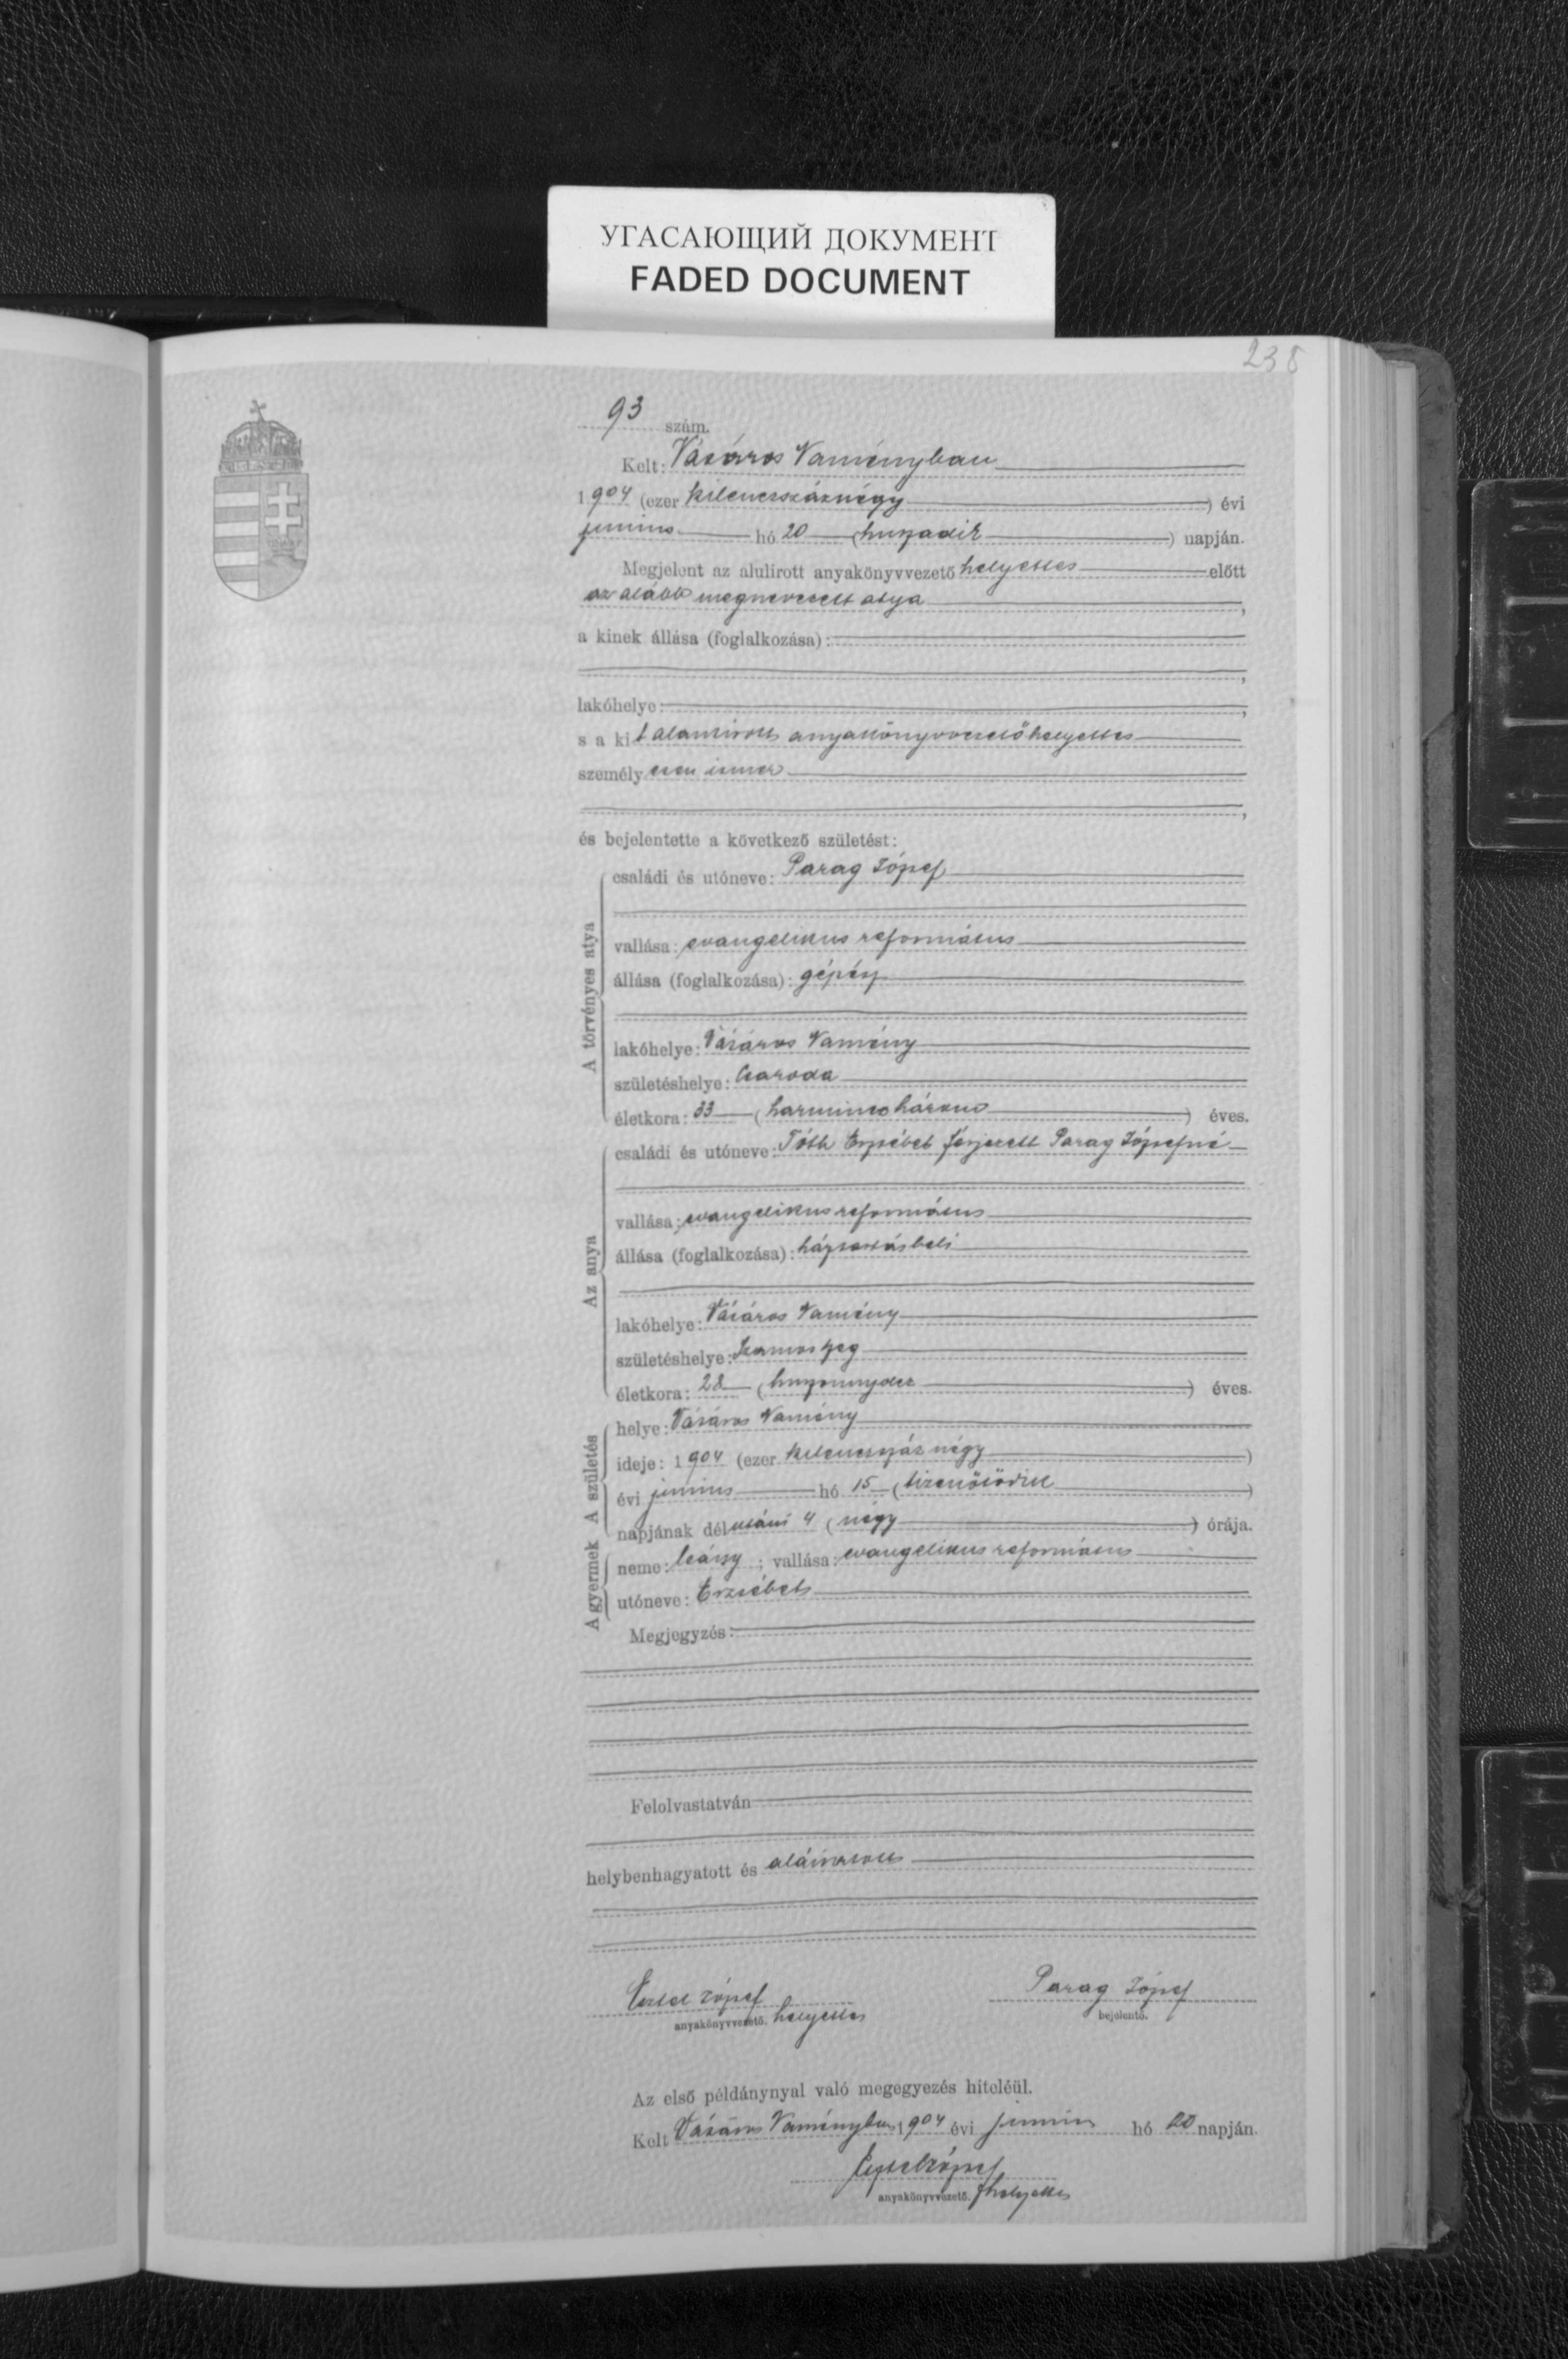 УГАСАЮЩИЙ ДОКУМЕНТ
FADED DOCUMENT
238
93 szám.
Kelt: Vásáros Naményban
1904 (ezer kilencszáznégy) évi
junius hó 20 (huszadik) napján.
Megjelent az alulirott anyakönyvvezető helyettes előtt
az alább megnevezett atya,
a kinek állása (foglalkozása):
,
lakóhelye: ,
s a kit alantirott anyakönyvvezető helyettes
személyesen ismer
,
és bejelentette a következő születést:
A törvényes atya
családi és utóneve: Parag József
vallása: evangelikus református
állása (foglalkozása): gépész
lakóhelye: Vásáros Namény
születéshelye: Csaroda
életkora: 33 (harminczhárom) éves.
Az anya
családi és utóneve: Tóth Erzsébet férjezett Parag Józsefné
vallása: evangelikus református
állása (foglalkozása): háztartásbeli
lakóhelye: Vásáros Namény
születéshelye: Szamosszeg
életkora: 28 (huszonnyolcz) éves.
A születés
helye: Vásáros Namény
ideje: 1904 (ezer kilencszáz négy)
évi junius hó 15 (tizenötödik)
napjának délutáni 4 (négy) órája.
A gyermek
neme: leány; vallása: evangelikus református
utóneve: Erzsébet
Megjegyzés:
Felolvastatván
helybenhagyatott és aláiratott
József Parag József
anyakönyvvezető. helyettes bejelentő.
Az első példánynyal való megegyezés hiteléül.
Kelt Vásáros Naményban, 1904 évi junius hó 20 napján.
József
anyakönyvvezető. helyettes